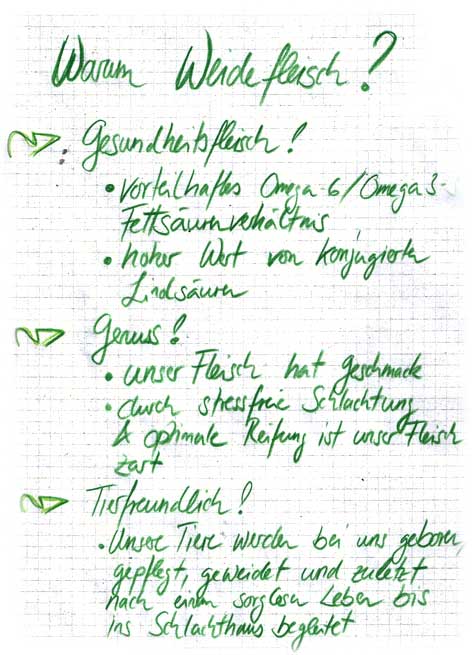 Warum Weidefleisch?
Gesundheitsfleisch!
• vorteilhaftes Omega-6/Omega 3-
Fettsäurenverhältnis
• hoher Wert von konjugierten
Linolsäuren
Genuss!
• unser Fleisch hat Geschmack
• durch stressfreie Schlachtung
& optimale Reifung ist unser Fleisch
zart
Tierfreundlich!
• Unsere Tiere werden bei uns geboren,
gepflegt, geweidet und zuletzt
nach einem sorglosen Leben bis
ins Schlachthaus begleitet.